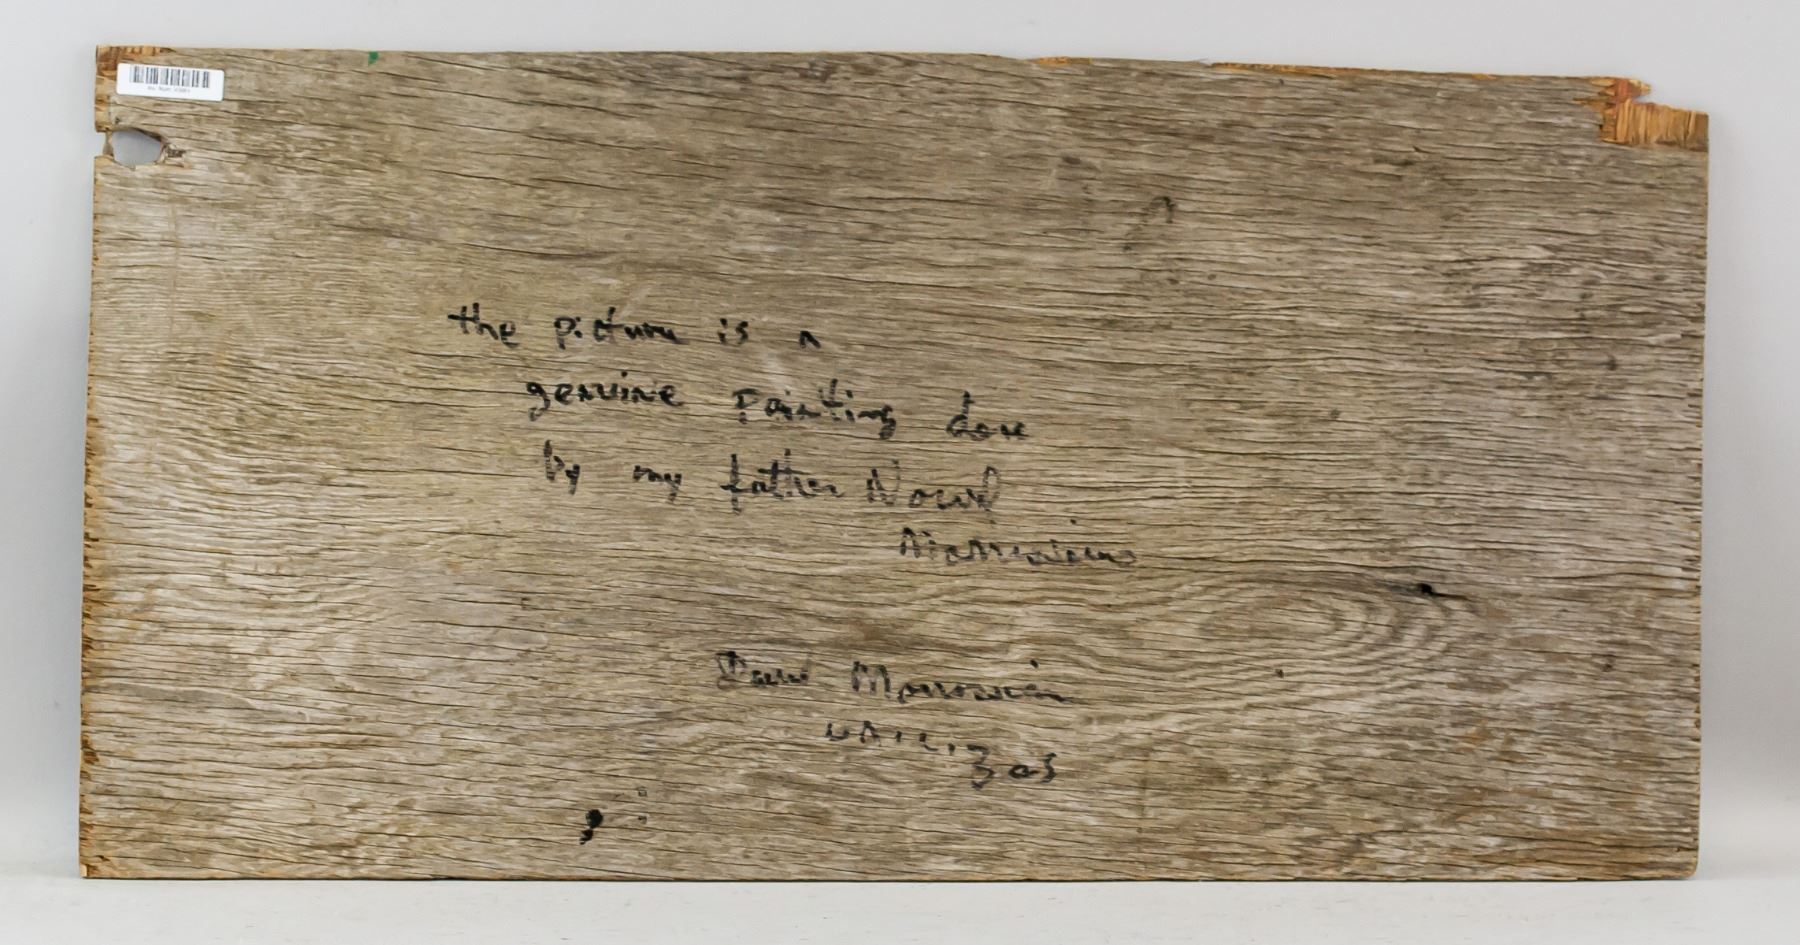 the picture is a
genuine painting done
by my father Norval
Morrisseau
Morrisseau